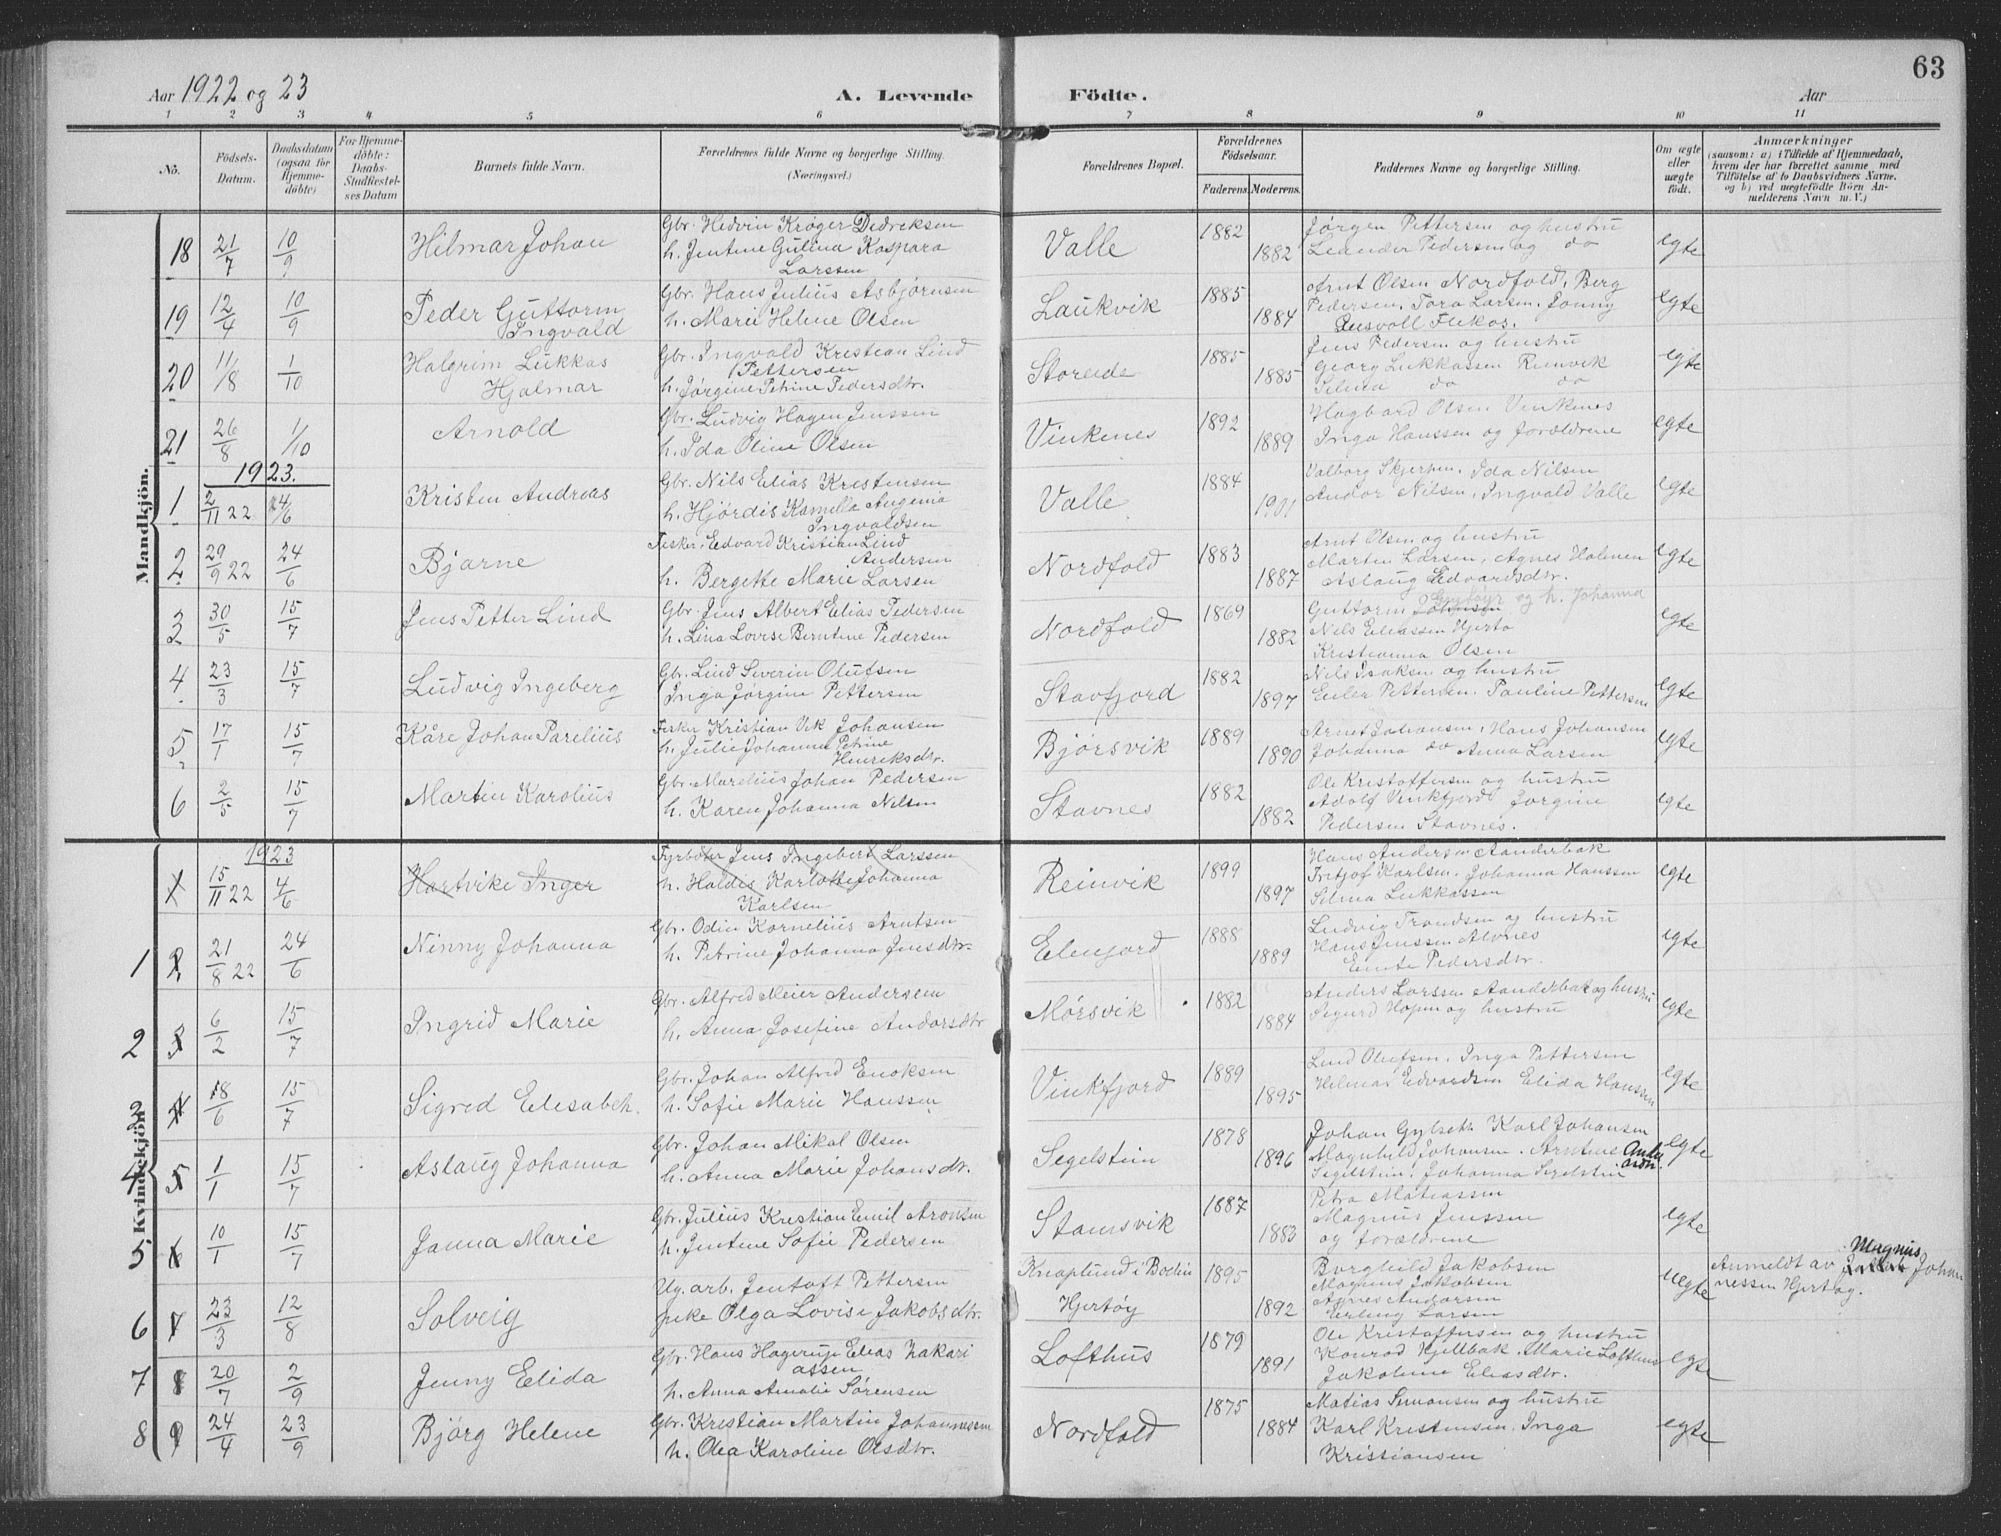 63
Aar 1922 og 23
A. Levende Födte.
Aar
1 2 3 4 5 6 7 8 9 10 11
No.
Födsels-Datum.
Daabsdatum (ogsaa for Hjemme-döbte)
For Hjemme-döbte: Daabs-Stadfæstel-ses Datum
Barnets fulde Navn.
Forældrenes fulde Navne og borgerlige Stilling. (Næringsvei.)
Forældrenes Bopæl.
Forældrenes Födselsaar.
Faderens. Moderens.
Faddernes Navne og borgerlige Stilling.
Om ægte eller uægte födt.
Anmærkninger
(saasom: a) i Tilfælde af Hjemmedaab, hvem der har forrettet samme med Tilföielse af to Daabsvidners Navne. og b) ved uægtefödte Börn An-melderens Navn m. V.)
Mandkjön.
18 21/7 10/9 Hilmar Johan
Gbr. Hedvin Krøger Dedreksen
h. Jentine Gulina Kaspara
Larssen
Valle 1882 1882
Jørgen Pettersen og hustru
Leander Pedersen og do
egte
19 12/4 10/9 Peder Guttorm
Ingvald
Gbr. Hans Julius Asbjørnsen
h. Marie Helene Olsen
Laukvik 1885 1884
Arnt Olsen Nordfold, Berg
Pedersen, Tora Larsen, Jonny
Flekas.
egte
20 11/8 1/10 Halgrim Lukkas
Hjalmar
Gbr. Ingvald Kristian Lind
Pettersen
h. Jørgine Petrine Pedersdtr.
Storeide 1885 1885
Jens Pedersen og hustru
Georg Lukkassen Reinvik
Selma do do
egte
21 26/8 1/10 Arnold
Gbr. Ludvig Hagen Jenssen
h. Ida Oline Olsen
Vinkenes 1892 1889
Hagbard Olsen Vinkenes
Inga Hanssen og forældrene
egte
1923.
1 2/11 22 24/6 Kristen Andreas
Gbr. Nils Elias Kristensen
h. Hjørdis Kamilla Augenia
Ingvaldsen
Valle 1884 1901
Valborg Skjerpen. Ida Nilsen
Andor Nilsen, Ingvald Valle
egte
2 29/9 22 24/6 Bjarne
Fisker. Edvard Kristian Lind
Andersen
h. Bergette Marie Larsen
Nordfold 1883 1887
Arnt Olsen og hustru
Martin Larsen, Agnes Holmen
Aslaug Edvardsdtr.
egte
3 30/5 15/7 Jens Petter Lind
Gbr. Jens Albert Elias Pedersen
h. Lina Lovise Berntine Pedersen
Nordfold 1869 1882
Guttorm Johansen og h. Johanna
Nils Eliassen Hjertø
Kristianna Olsen
egte
4 23/3 15/7 Ludvig Ingeberg
Gbr. Lind Severin Olufsen
Inga Jørgine Pettersen
Stavfjord 1882 1897
Nils Isaksen og hustru
Euler Pettersen. Pauline Pettersen
egte
5 17/1 15/7 Kåre Johan Parelius
Fisker Kristian Vik Johansen
h. Julie Johanna Petrine
Henriksdtr.
Bjørsvik 1889 1890
Arnet Johansen, Hans Johansen
Johanna do Anna Larsen
egte
6 2/5 15/7 Martin Karolius
Gbr. Marelius Johan Pedersen
h. Karen Johanna Nilsen
Stavnes 1882 1882
Ole Kristoffersen og hustru
Adolf Vinkfjord Jørgine
Pedersen Stavnes.
egte
Kvindekjön
1923
1 15/11 22 4/6 Hartvike Inger
Fyrbøter Jens Ingebert Larssen
h. Haldis Karlotte Johanna
Karlsen
Reinvik 1899 1897
Hans Andersen Aanderbak
Fritjof Karlsen. Johanna Hanssen
Selma Lukkassen
egte
1 2 21/8 22 24/6 Ninny Johanna
Gbr. Odin Kornelius Arntsen
h. Petrine Johanna Jensdtr.
Eienfjord 1888 1889
Ludvig Trondsen og hustru
Hans Jenssen Alvnes
Pedersdtr.
egte
2 3 6/2 15/7 Ingrid Marie
Gbr. Alfred Meier Andersen
h. Anna Josefine Andorsdtr
Mørsvik 1882 1884
Anders Larssen Aanderbak og hustru
Sigurd Hopen og hustru
egte
3 4 18/6 15/7 Sigred Elesabeh.
Gbr. Johan Alfred Enoksen
h. Sofie Marie Hanssen
Vinkfjord 1889 1895
Lind Olufsen. Inga Pettersen
Hilmar Edvardsen Elida Hanssen
egte
4 5 1/1 15/7 Aslaug Johanna
Gbr. Johan Mikal Olsen
h. Anna Marie Johansdtr.
Segelstein 1878 1896
Johan Gylseth Karl Johansen
Magnhild Johansen. Arntine
Segelstein. Johanna Segelstein
egte
5 6 10/1 15/7 Janna Marie
Gbr. Julius Kristian Emil Aronsen
h. Jentine Sofie Pedersen
Stamsvik 1887 1883
Petra Matiassen
Magnus Jenssen
og forældrene
egte
6 7 23/3 12/8 Solveig
Ug. arb. Jentoft Pettersen
pike Olga Lovise Jakobsdtr.
Knaplund i Bodin
Hjertøy 1895 1892
Borghild Jakobsen
Magnus Jakobsen
Agnes Andorsen
Erling Larsen
uegte
Anmeldt av Magnus Johan
nessen Hjertøy.
7 8 20/7 2/9 Jenny Elida
Gbr. Hans Hagerup Elias Zakari
assen
h. Anna Amalie Sørensen
Lofthus 1879 1891
Ole Kristoffersen og hustru
Konrad Hjellbak. Marie Lofthus
Jakobine Eliasdtr.
egte
8 9 24/4 23/9 Bjørg Helene
Gbr. Kristian Martin Johannessen
h. Olea Karoline Olsdtr.
Nordfold 1875 1884
Matias Simonsen og hustru
Karl Kristensen. Inga
Kristiansen
egte